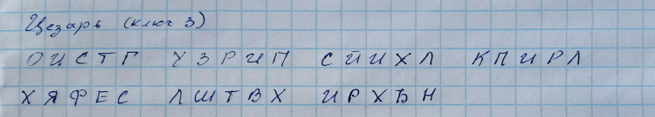 Цезарь (ключ 3)
ОИСТГ УЗРИП СЙИХЛ КПИРЛ
ХЯФЕС ЛШТВХ ИРХЪН